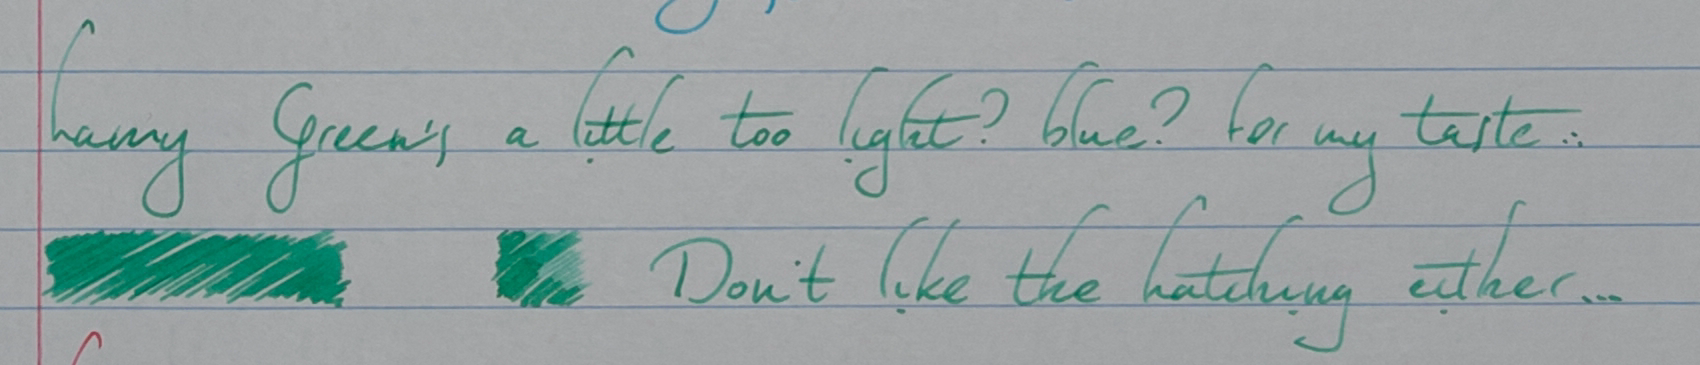 Lamy Green's a little too light? blue? for my taste...
Don't like the hatching either...